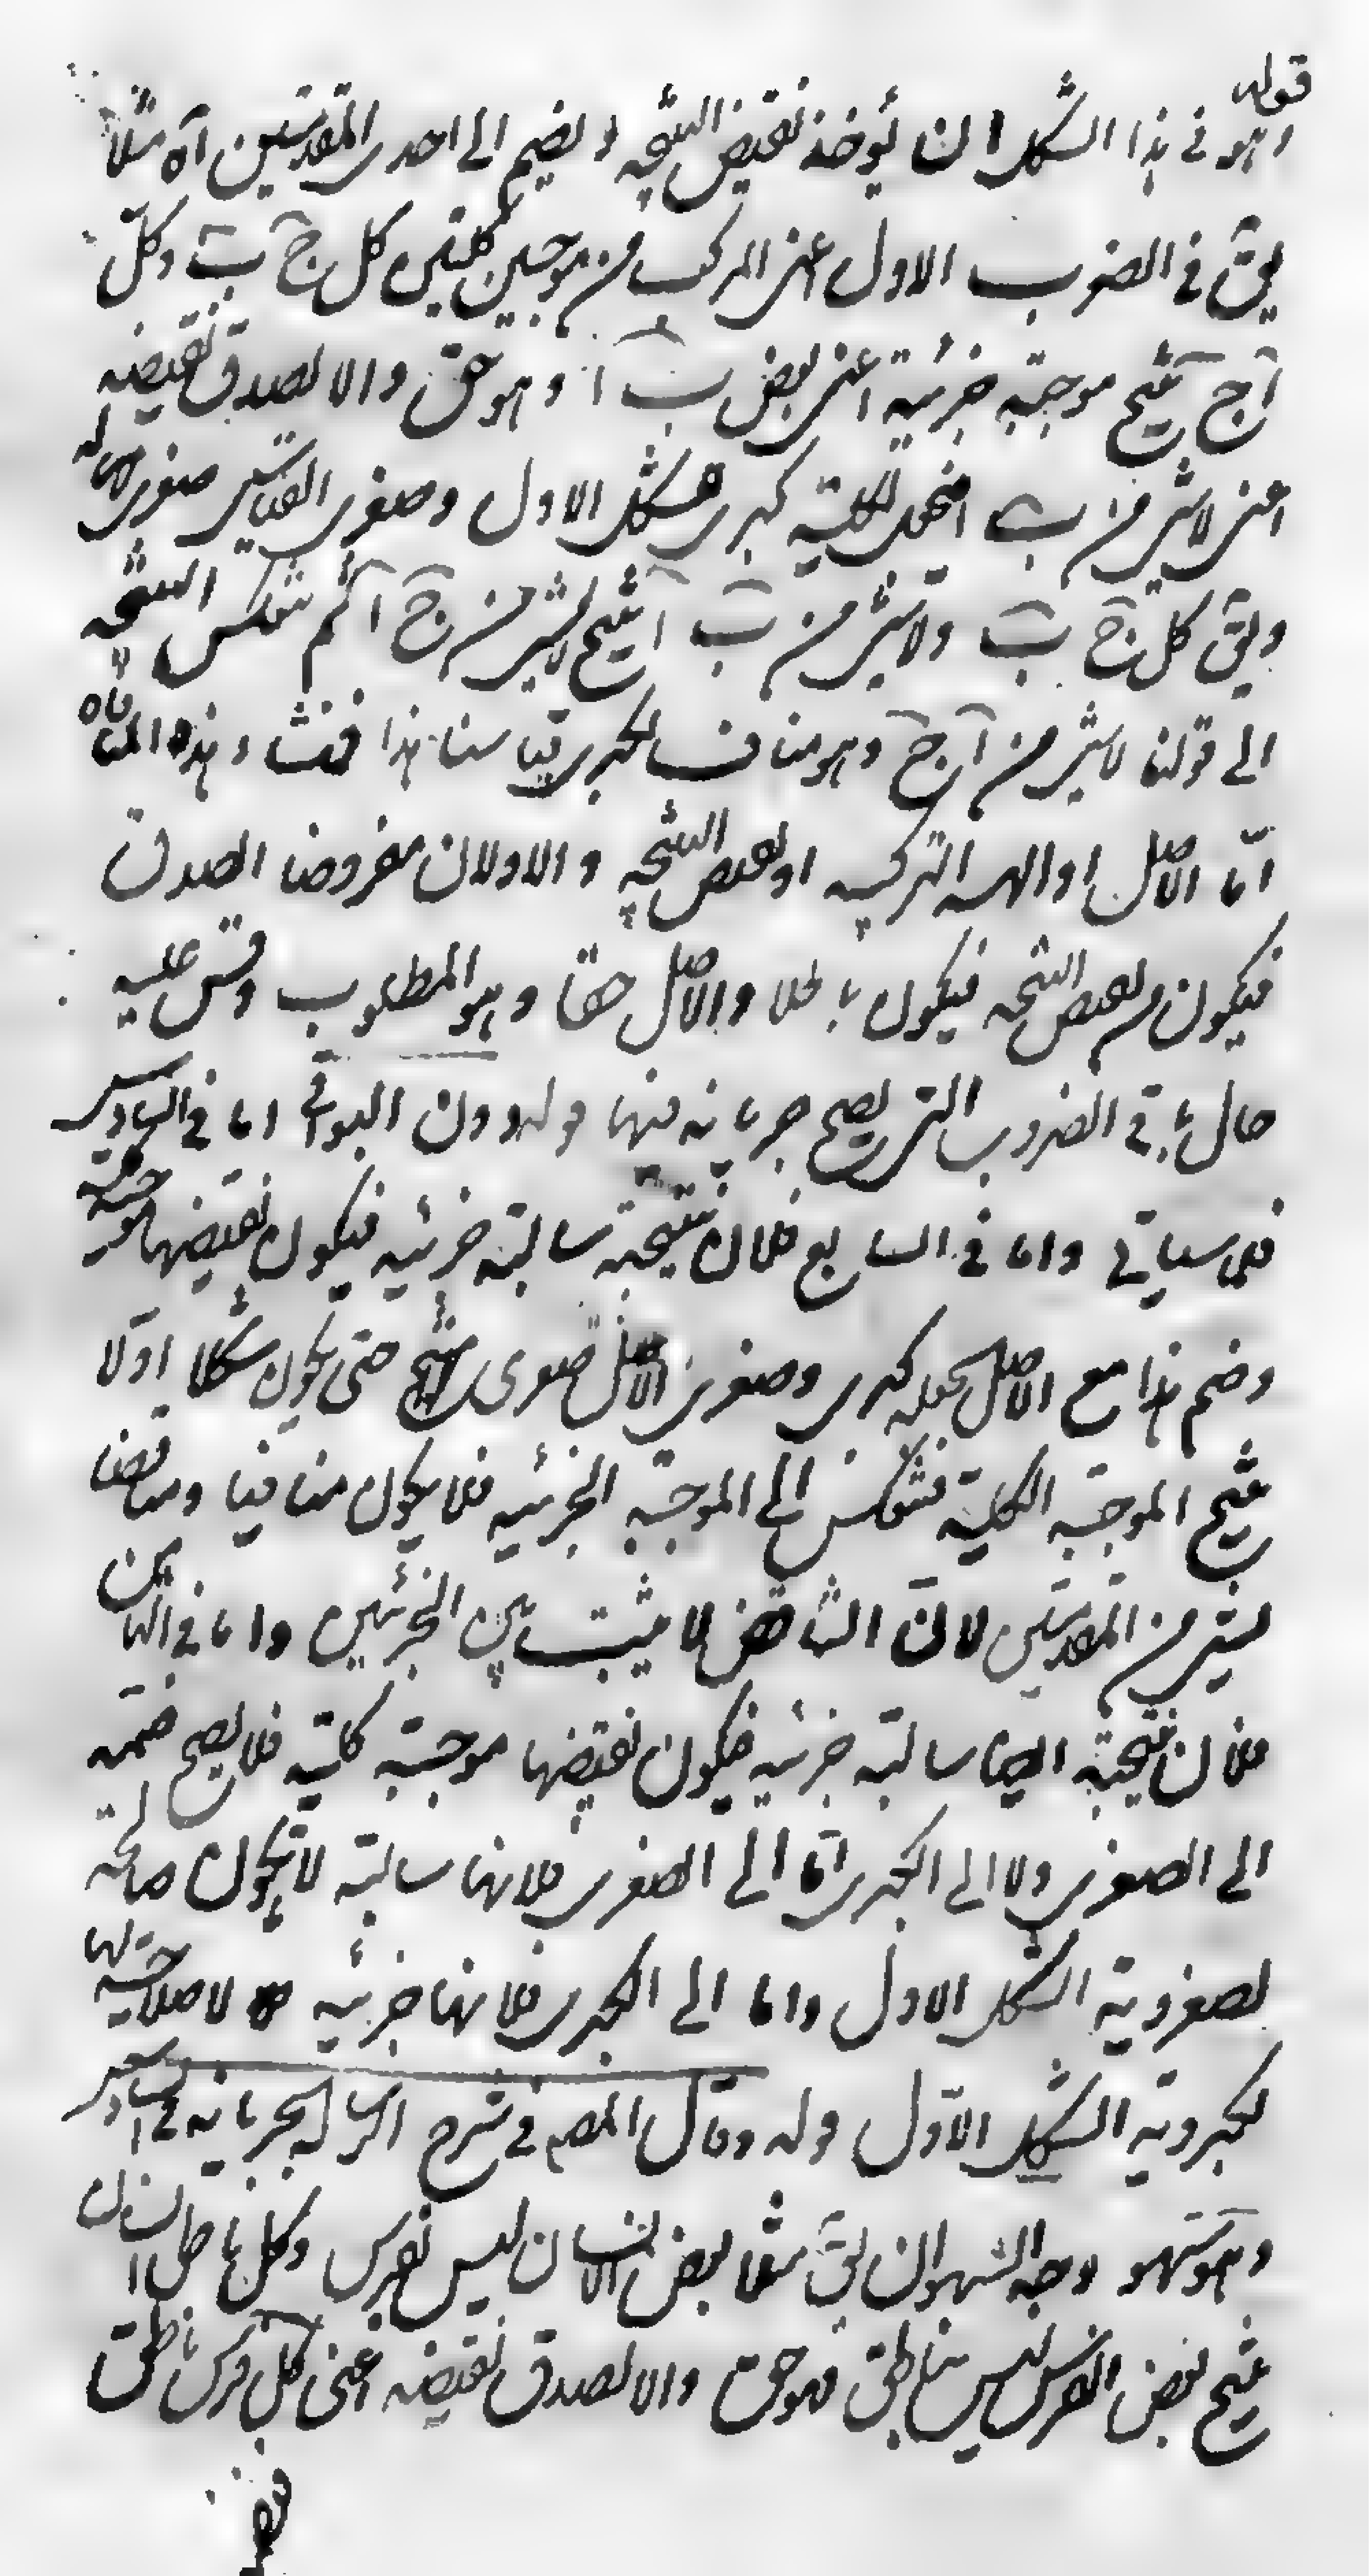 قوله
وهو فى هذا الشكل ان يؤخذ نقيض النتيجه ويضم الى احدى المقدمتين آه مثلًا
يق فى الضرب الاول اعنى المركب من موجبتين كليتين كل ج ب وكل
آ ج ينتج موجبة جزئية اعنى بعض ب آ وهو حق والا لصدق نقيضه
اعنى لا شئ من ب آ فنجعل لكلية كبرى للشكل الاول وصغرى القياس صغرى له
ويق كل ج ب ولا شئ من ب آ ينتج لا شئ من ج آ ثم ينعكس النتيجه
الى قولنا لا شئ من آ ج وهو مناف لكبرى قياسنا هذا فنشاء هذه المنافاه
امّا الاصل او الهيئة التركيبيه او نقيض النتيجه والاولان مفروضا الصدق
فيكون من نقيض النتيجه فيكون باطلا والاصل حقا وهو المطلوب وقس عليه
حال باقى الضروب التى يصح جريانه فيها قوله دون البواقى اما فى السادس
فلما سياتى واما فى السابع فلان نتيجته سالبة جزئيه فيكون نقيضها موجبة كلية
وضم هذا مع الاصل بجعله كبرى وصغرى الاصل صغرى حتى يكون شكلا اولا
ينتج الموجبة الكلية فتنعكس الى الموجبة الجزئيه فلا يكون منافيا ومناقضا
لشئ من المقدمتين لانّ التناقض لا يثبت بين الجزئيين واما فى الثامن
فلان نتيجته ايضا سالبة جزئيه فيكون نقيضها موجبة كلية فلا يصح ضمه
الى الصغرى ولا الى الكبرى امّا الى الصغرى فلانها سالبة لا تكون صالحة
لصغروية الشكل الاول واما الى الكبرى فلانها جزئيه لا صلاحية لها
لكبروية الشكل الاوّل قوله وقال المص فى شرح الرسالة بجريانه فى السادس
وهو سهو وجه السهو ان يق مثلا بعض الانسان ليس بفرس وكل ناطق انسان
ينتج بعض الفرس ليس بناطق فهو حق والا لصدق نقيضه اعنى كل فرس ناطق